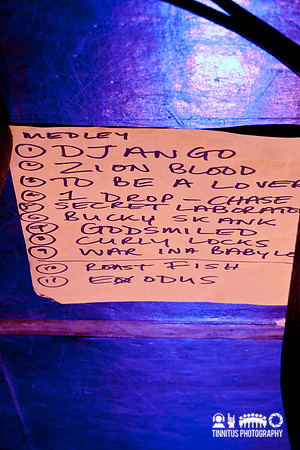 MEDLEY
① DJANGO
② ZION BLOOD
③ TO BE A LOVER
④ 1 DROP - CHASE
⑤ SECRET LABORATO
⑥ BUCKY SKANK
⑦ GODSMILED
⑧ CURLY LOCKS
⑨ WAR INA BABYLO
⑩ ROAST FISH
⑪ EXODUS
TINNITUS PHOTOGRAPHY